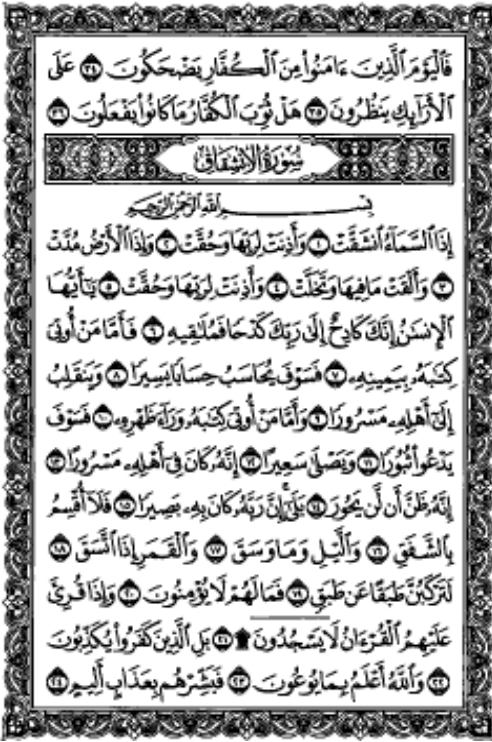 فَٱلْيَوْمَ ٱلَّذِينَ ءَامَنُوا۟ مِنَ ٱلْكُفَّارِ يَضْحَكُونَ ٣٤ عَلَى
ٱلْأَرَآئِكِ يَنظُرُونَ ٣٥ هَلْ ثُوِّبَ ٱلْكُفَّارُ مَا كَانُوا۟ يَفْعَلُونَ ٣٦
سُورَةُ الانشِقَاقِ
بِسْمِ ٱللَّهِ ٱلرَّحْمَٰنِ ٱلرَّحِيمِ
إِذَا ٱلسَّمَآءُ ٱنشَقَّتْ ١ وَأَذِنَتْ لِرَبِّهَا وَحُقَّتْ ٢ وَإِذَا ٱلْأَرْضُ مُدَّتْ
٣ وَأَلْقَتْ مَا فِيهَا وَتَخَلَّتْ ٤ وَأَذِنَتْ لِرَبِّهَا وَحُقَّتْ ٥ يَٰٓأَيُّهَا
ٱلْإِنسَٰنُ إِنَّكَ كَادِحٌ إِلَىٰ رَبِّكَ كَدْحًا فَمُلَٰقِيهِ ٦ فَأَمَّا مَنْ أُوتِىَ
كِتَٰبَهُۥ بِيَمِينِهِۦ ٧ فَسَوْفَ يُحَاسَبُ حِسَابًا يَسِيرًا ٨ وَيَنقَلِبُ
إِلَىٰٓ أَهْلِهِۦ مَسْرُورًا ٩ وَأَمَّا مَنْ أُوتِىَ كِتَٰبَهُۥ وَرَآءَ ظَهْرِهِۦ ١٠ فَسَوْفَ
يَدْعُوا۟ ثُبُورًا ١١ وَيَصْلَىٰ سَعِيرًا ١٢ إِنَّهُۥ كَانَ فِىٓ أَهْلِهِۦ مَسْرُورًا ١٣
إِنَّهُۥ ظَنَّ أَن لَّن يَحُورَ ١٤ بَلَىٰٓ إِنَّ رَبَّهُۥ كَانَ بِهِۦ بَصِيرًا ١٥ فَلَآ أُقْسِمُ
بِٱلشَّفَقِ ١٦ وَٱلَّيْلِ وَمَا وَسَقَ ١٧ وَٱلْقَمَرِ إِذَا ٱتَّسَقَ ١٨
لَتَرْكَبُنَّ طَبَقًا عَن طَبَقٍ ١٩ فَمَا لَهُمْ لَا يُؤْمِنُونَ ٢٠ وَإِذَا قُرِئَ
عَلَيْهِمُ ٱلْقُرْءَانُ لَا يَسْجُدُونَ ۩ ٢١ بَلِ ٱلَّذِينَ كَفَرُوا۟ يُكَذِّبُونَ
٢٢ وَٱللَّهُ أَعْلَمُ بِمَا يُوعُونَ ٢٣ فَبَشِّرْهُم بِعَذَابٍ أَلِيمٍ ٢٤